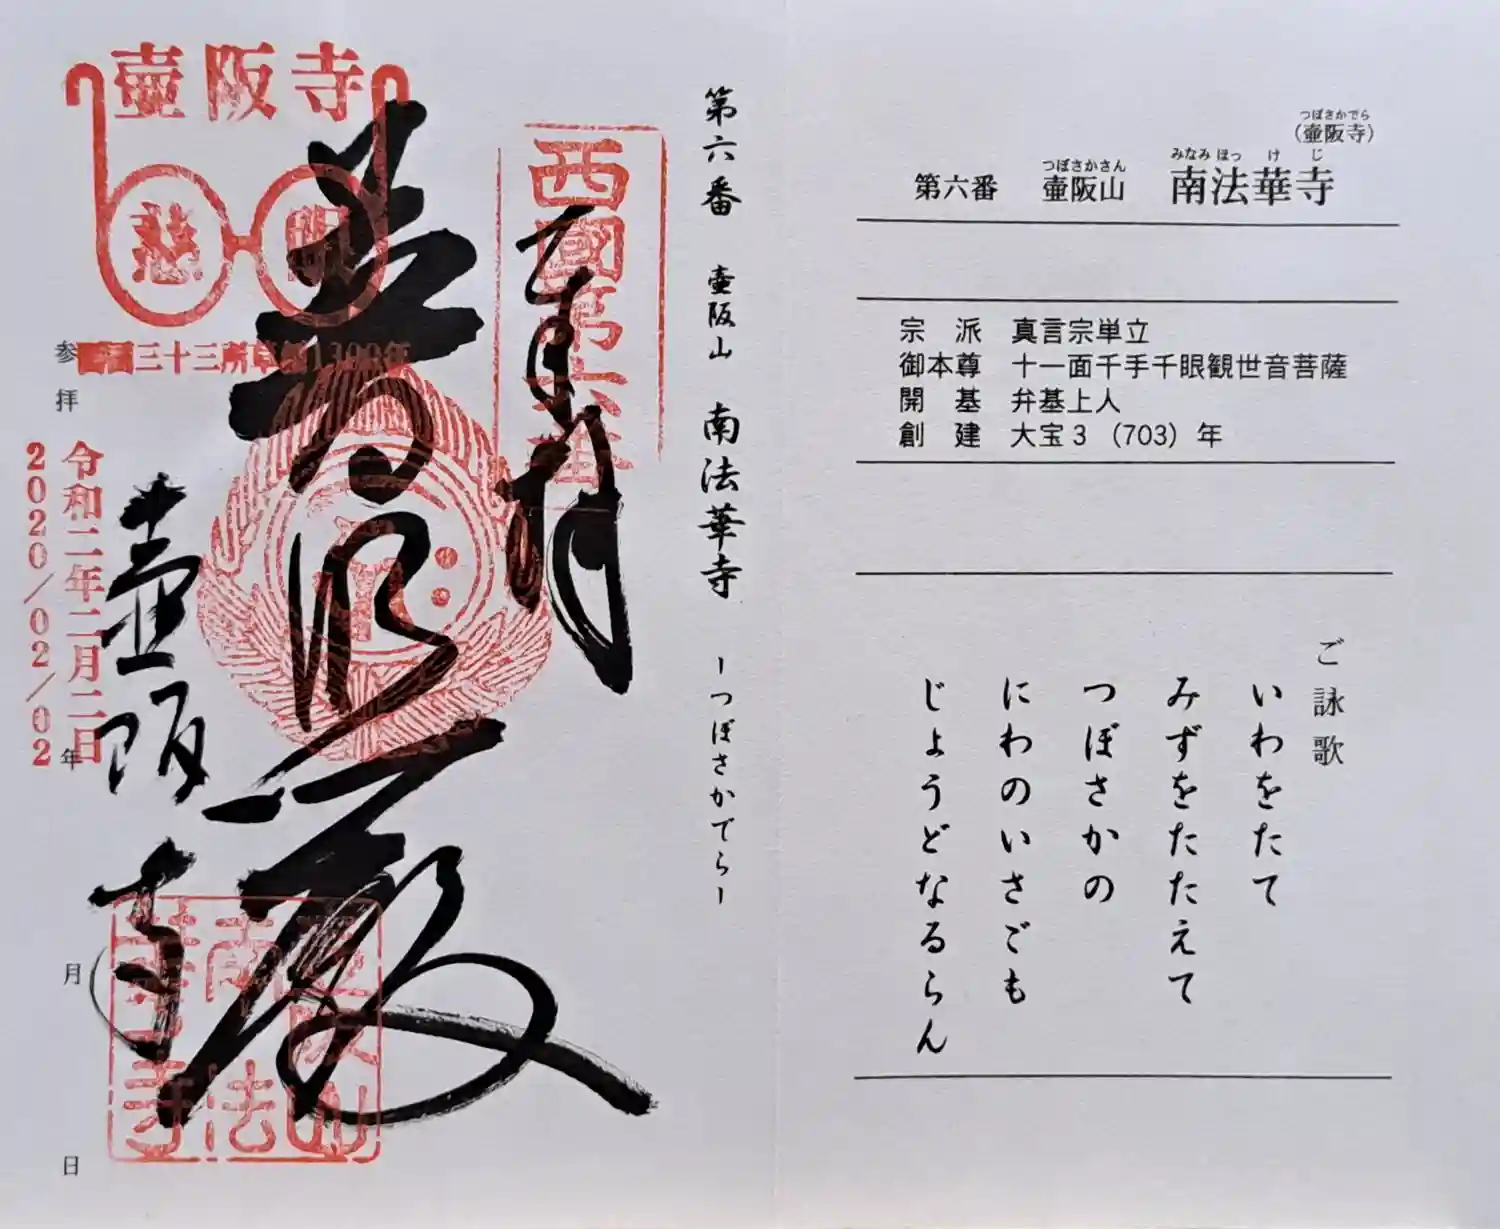 (壷阪寺)
つぼさかでら
第六番 壷阪山 南法華寺
つぼさかさん
みなみほっけじ
宗派 真言宗単立
御本尊 十一面千手千眼観世音菩薩
開基 弁基上人
創建 大宝3(703)年
ご詠歌
いわをたて
みずをたたえて
つぼさかの
にわのいさごも
じょうどなるらん
第六番 壷阪山 南法華寺 ーつぼさかでらー
西國第六番
奉拝
普照殿
壷阪寺
慈眼
西国三十三所草創1300年
壷阪山南法華寺
壷阪寺
参拝 年 月 日
令和二年二月二日
2020/02/02